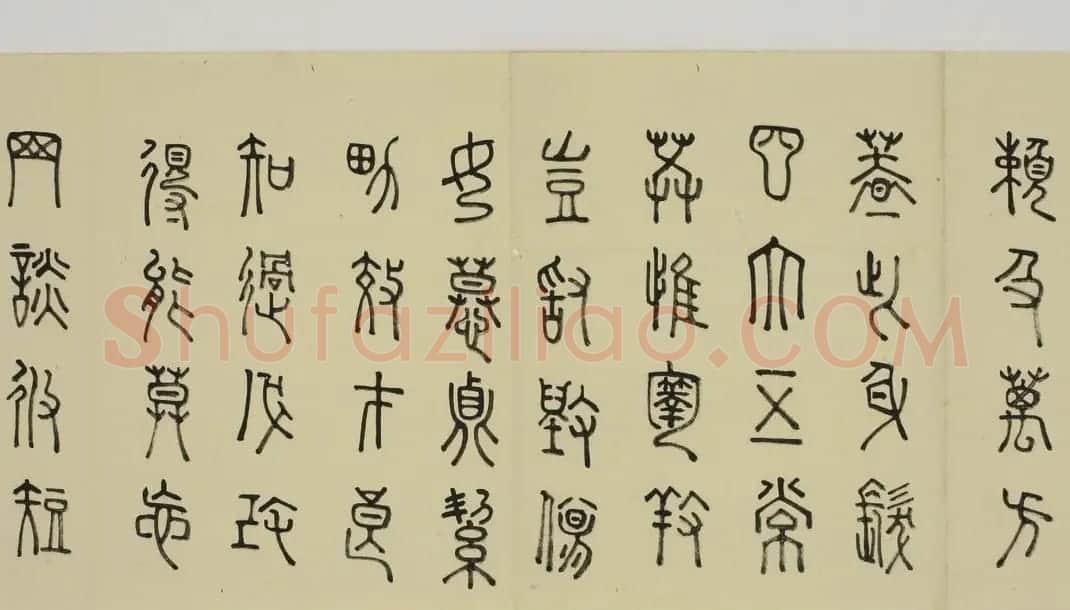 賴及萬方
蓋此身髮
四大五常
恭惟鞠養
豈敢毀傷
女慕貞絜
男效才良
知過必改
得能莫忘
罔談彼短
Shufaziliao.COM